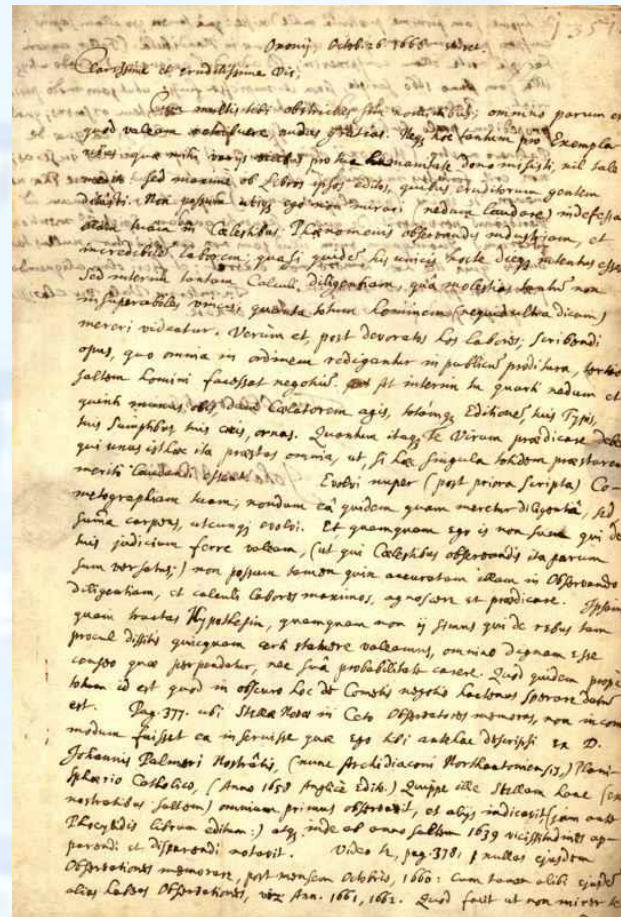 Oxonii Octob. 26 1668
Clarissime et eruditissime Vir,
Cum multis tibi obstrictus sim nominibus; omnino parum est
quod valeam retribuere nudas gratias. Neq; hoc tantum pro Exempla-
quæ mihi variis vicibus pro tua humanitate dono misisti, nil tale
sed maxime ob Libros ipsos editos, quibus eruditorum gentem
Non possum utiq; ego non mirari (nedum laudare) indefessam
tuam in Cœlestibus Phænomenis observandis industriam, et
incredibilē laborem; quasi quidē his unicis nocte dieq; intentus esses
Sed interim tantam Calculi diligentiam, quā molestias tantū non
insuperabiles vincis; quæ tota totum hominem (nequid ultra dicam)
mereri videatur. Verùm et, post devoratos hos labores; scribendi
opus, quo omnia in ordinem redigantur in publicū proditura, tertio
saltem homini facessat negotiū. At interim tu quarti nedum et
quinti munus, dum Cælatorem agis, totamq; Editionē, tuis Typis,
tuis Sumptibus ornas. Quantum itaq; Te Virum prædicare
qui unus isthæc ita præstas omnia, ut si hæc singula totidem præstarent
meriti laudandi essent. Evolvi nuper (post priora scripta) Co-
metographiam tuam; nondum eâ quidem quam meretur diligentiâ, sed
summa carpens, utcunq; evolvi. Et quamquam ego is non sum qui de
tuis judicium ferre valeam, (ut qui Cœlestibus observandis ita parum
sum versatus;) non possum tamen quin accuratam illam in Observando
diligentiam, et calculi labores maximos, agnoscere et prædicare. Ipsam
quam tractas Hypothesin, quamquam non ii simus qui de rebus tam
procul dissitis quicquam certi statuere valeamus, omnino dignam esse
censeo quæ perpendatur, nec suâ probabilitate carere. Quod quidem propè
totum id est quod in obscuro hoc de Cometis negotio hactenus sperare datū
est. Pag. 377. ubi Stellæ Novæ in Ceto Observatores memoras, non incom-
modum fuisset ea inseruisse quæ ego tibi antehac descripsi ex D.
Johannis Palmeri Nostratis, (nunc Archidiaconi Northantoniensis,) Plani-
sphærio Catholico, (Anno 1658 Anglicè Edito.) Quippe ille Stellam hanc (ex
nostratibus saltem) omnium primus observavit, et aliis indicavit (jam ante
Phocylidis librum editum:) atq; inde ab anno saltem 1639 vicissitudines ap-
parendi et disparendi notavit. Video te, pag. 378, nullas ejusdem
Observationes memorare, post mensem Octobris, 1660: Cum tamen alibi ejusdē
alias habeas Observationes, viz Ann. 1661, 1662. Quod facit ut non mirer te